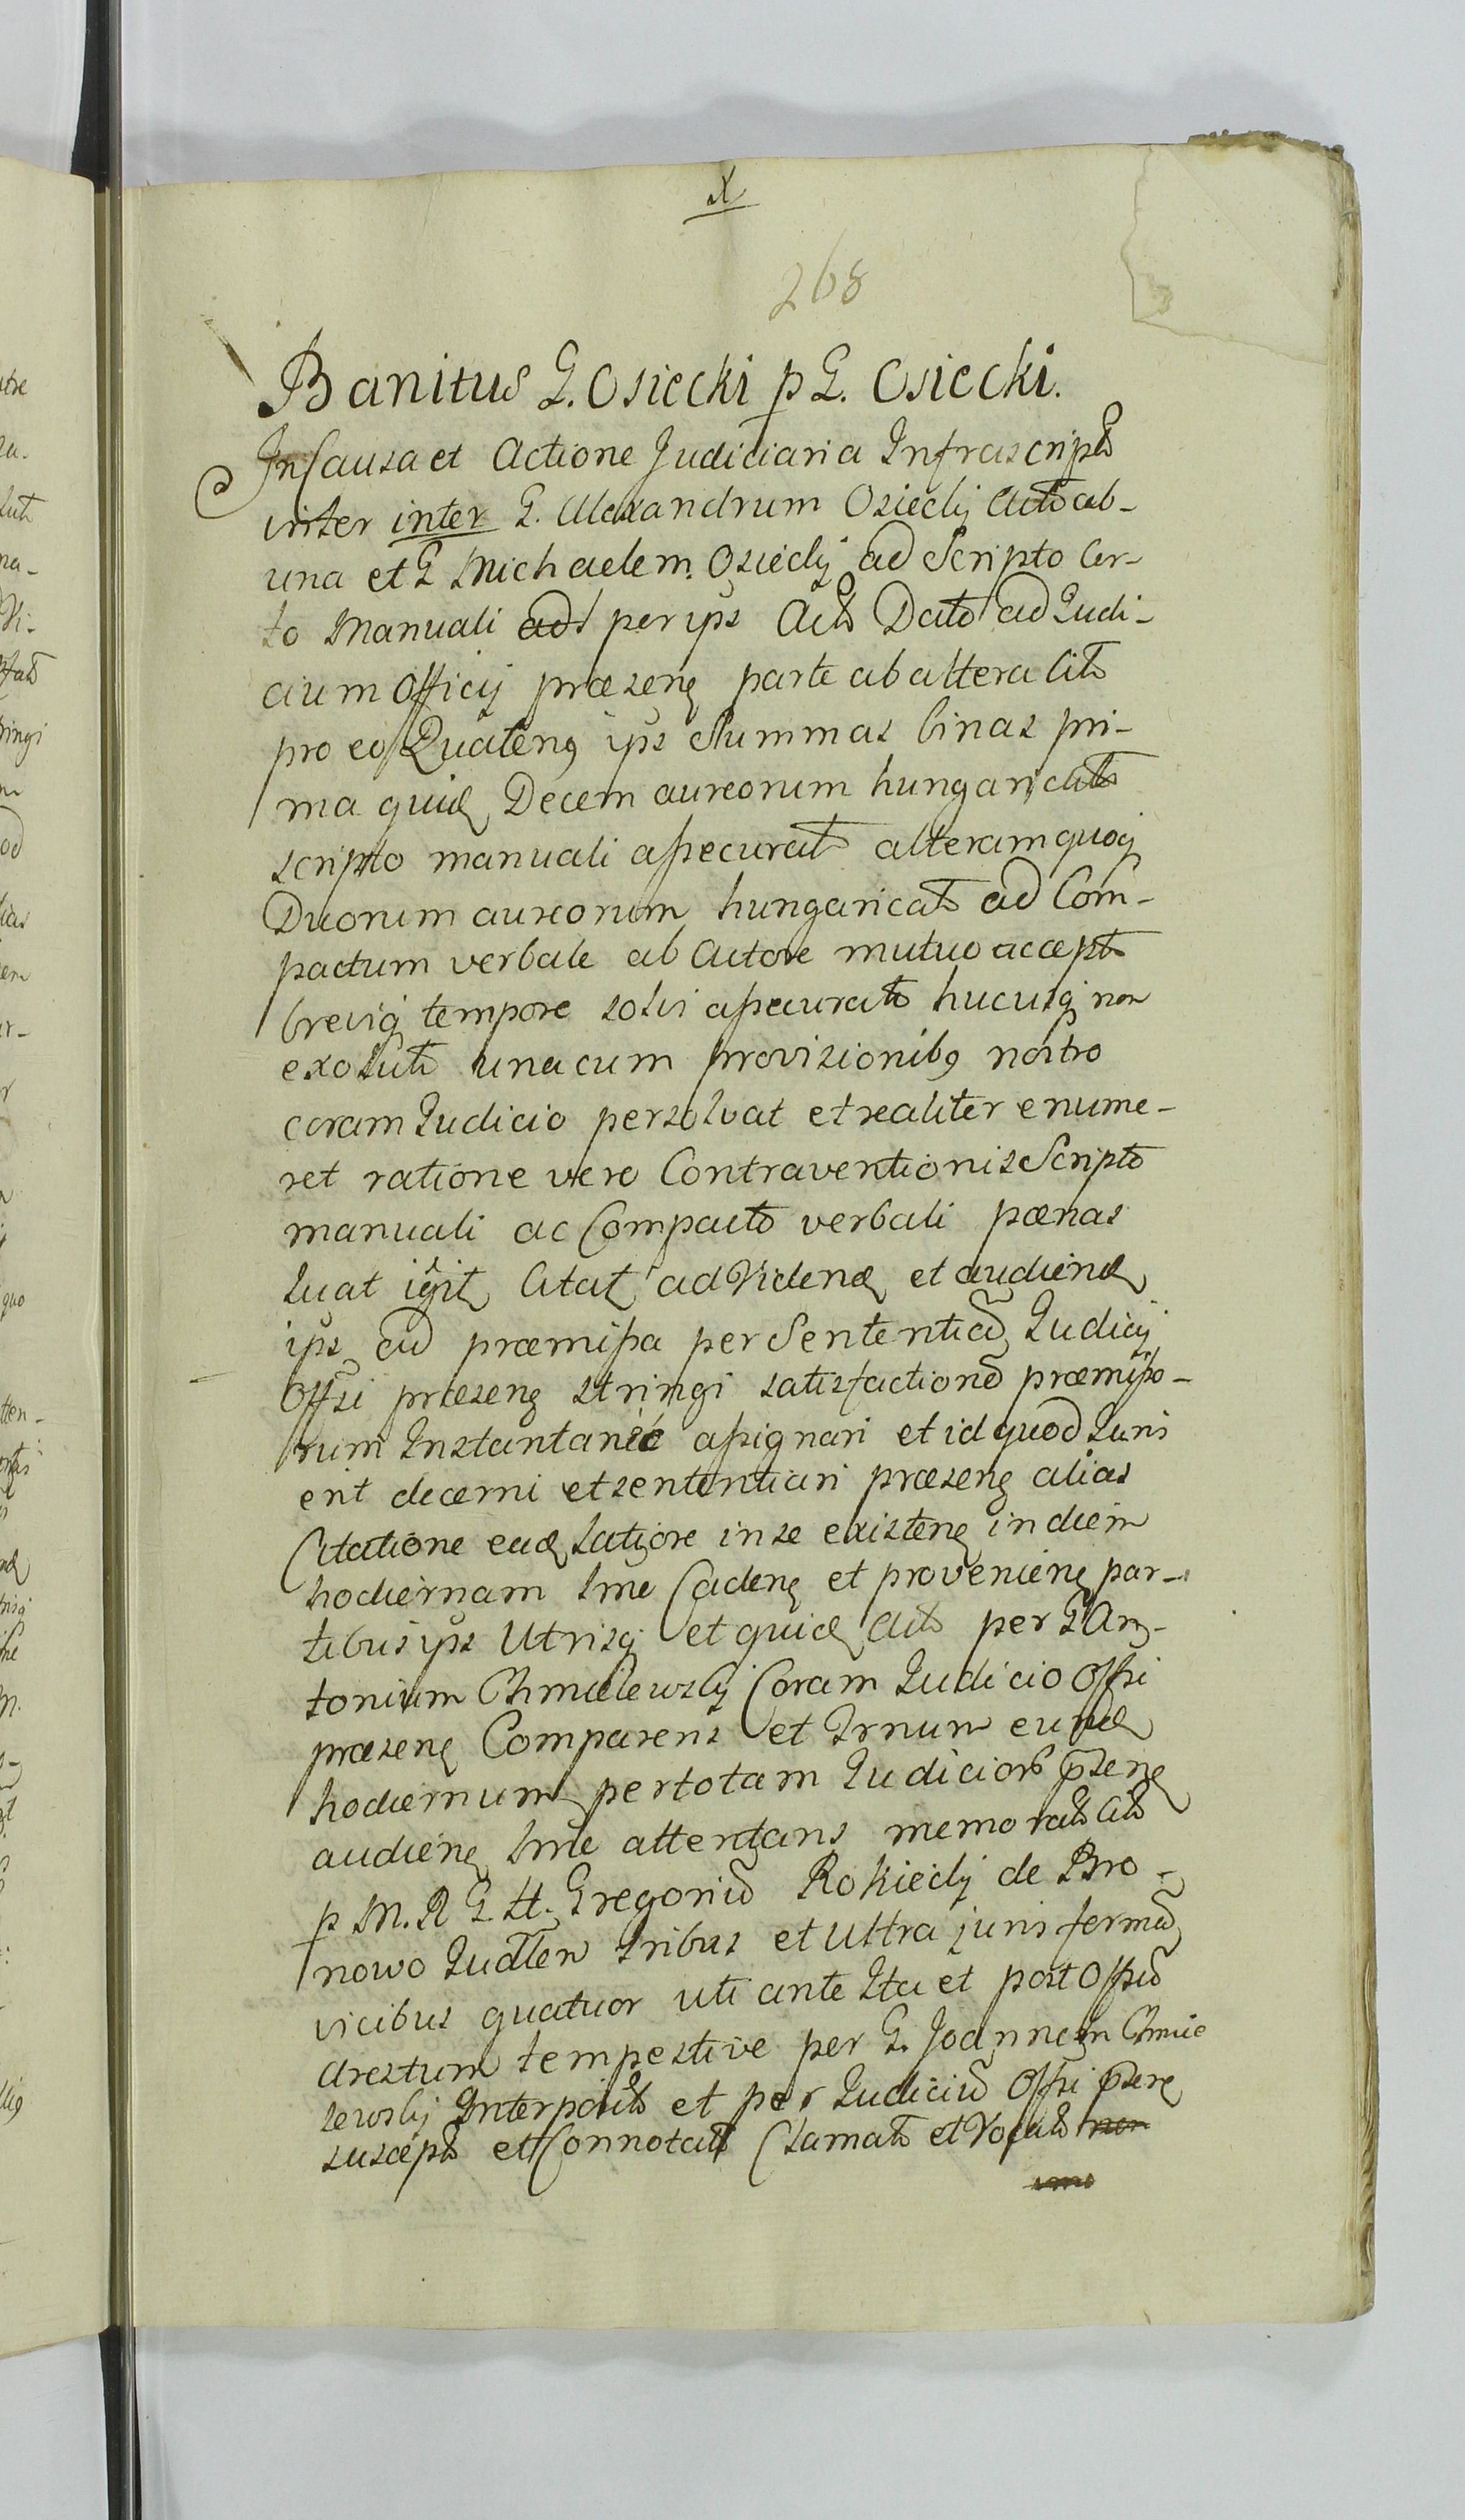 X
268
Banitus G. Osiecki p G. Osiecki.
In Causa et Actione Judiciaria Infrascripto
inter inter G. Alexandrum Osiecki Acto ab-
una et G Michaelem Osiecki ad Scripto Cer-
to Manuali ad per ips Acto Dato ad Judi-
cium Officij præsenq parte ab altera Cito
pro eo Quatenq ips Summas binas pri-
ma quidē Decem aureorum hungaricato
scripto manuali assecurato alteram quoq
Duorum aureorum hungaricato ad Com-
pactum verbale ab Actore mutuo accepto
breviq tempore solvi assecurato hucusq non
exoluto una cum provisionibq nostro
coram Judicio persolvat et realiter enume-
ret ratione vero Contraventionis Scripto
manuali ac Compacto verbali pœnas
luat igit Citat ad Videnđ et audienđ
ips ad præmissa per Sententiā Judicij
Offsi præsenq stringi satisfactionē præmisso-
rum Instantanee assignari et id quod Juris
erit decerni et sententiari præsenq alias
Citatione eadē latiore in se existenq in diem
hodiernam Tme Cadenq et provenienq par-
tibus ips Utrisq et quidē Acto per G An-
tonium Chmielewskij Coram Judicio Offsi
præsenq Comparens et Trnum eundē
hodiernum per totam Judicior p̄senq
audienq Tme attentans memorato Cito
p M. R G. H. Gregoriū Rokiecki de Bro-
nowo Judlem tribus et Ultra juris formā
vicibus quatuor uti ante Ita et post Offsiū
Arestum tempestive per G. Joannem Chmie
lewskij Interposito et per Judiciū Offsi p̄senq
suscepto et Connotato Clamato et Vocato non